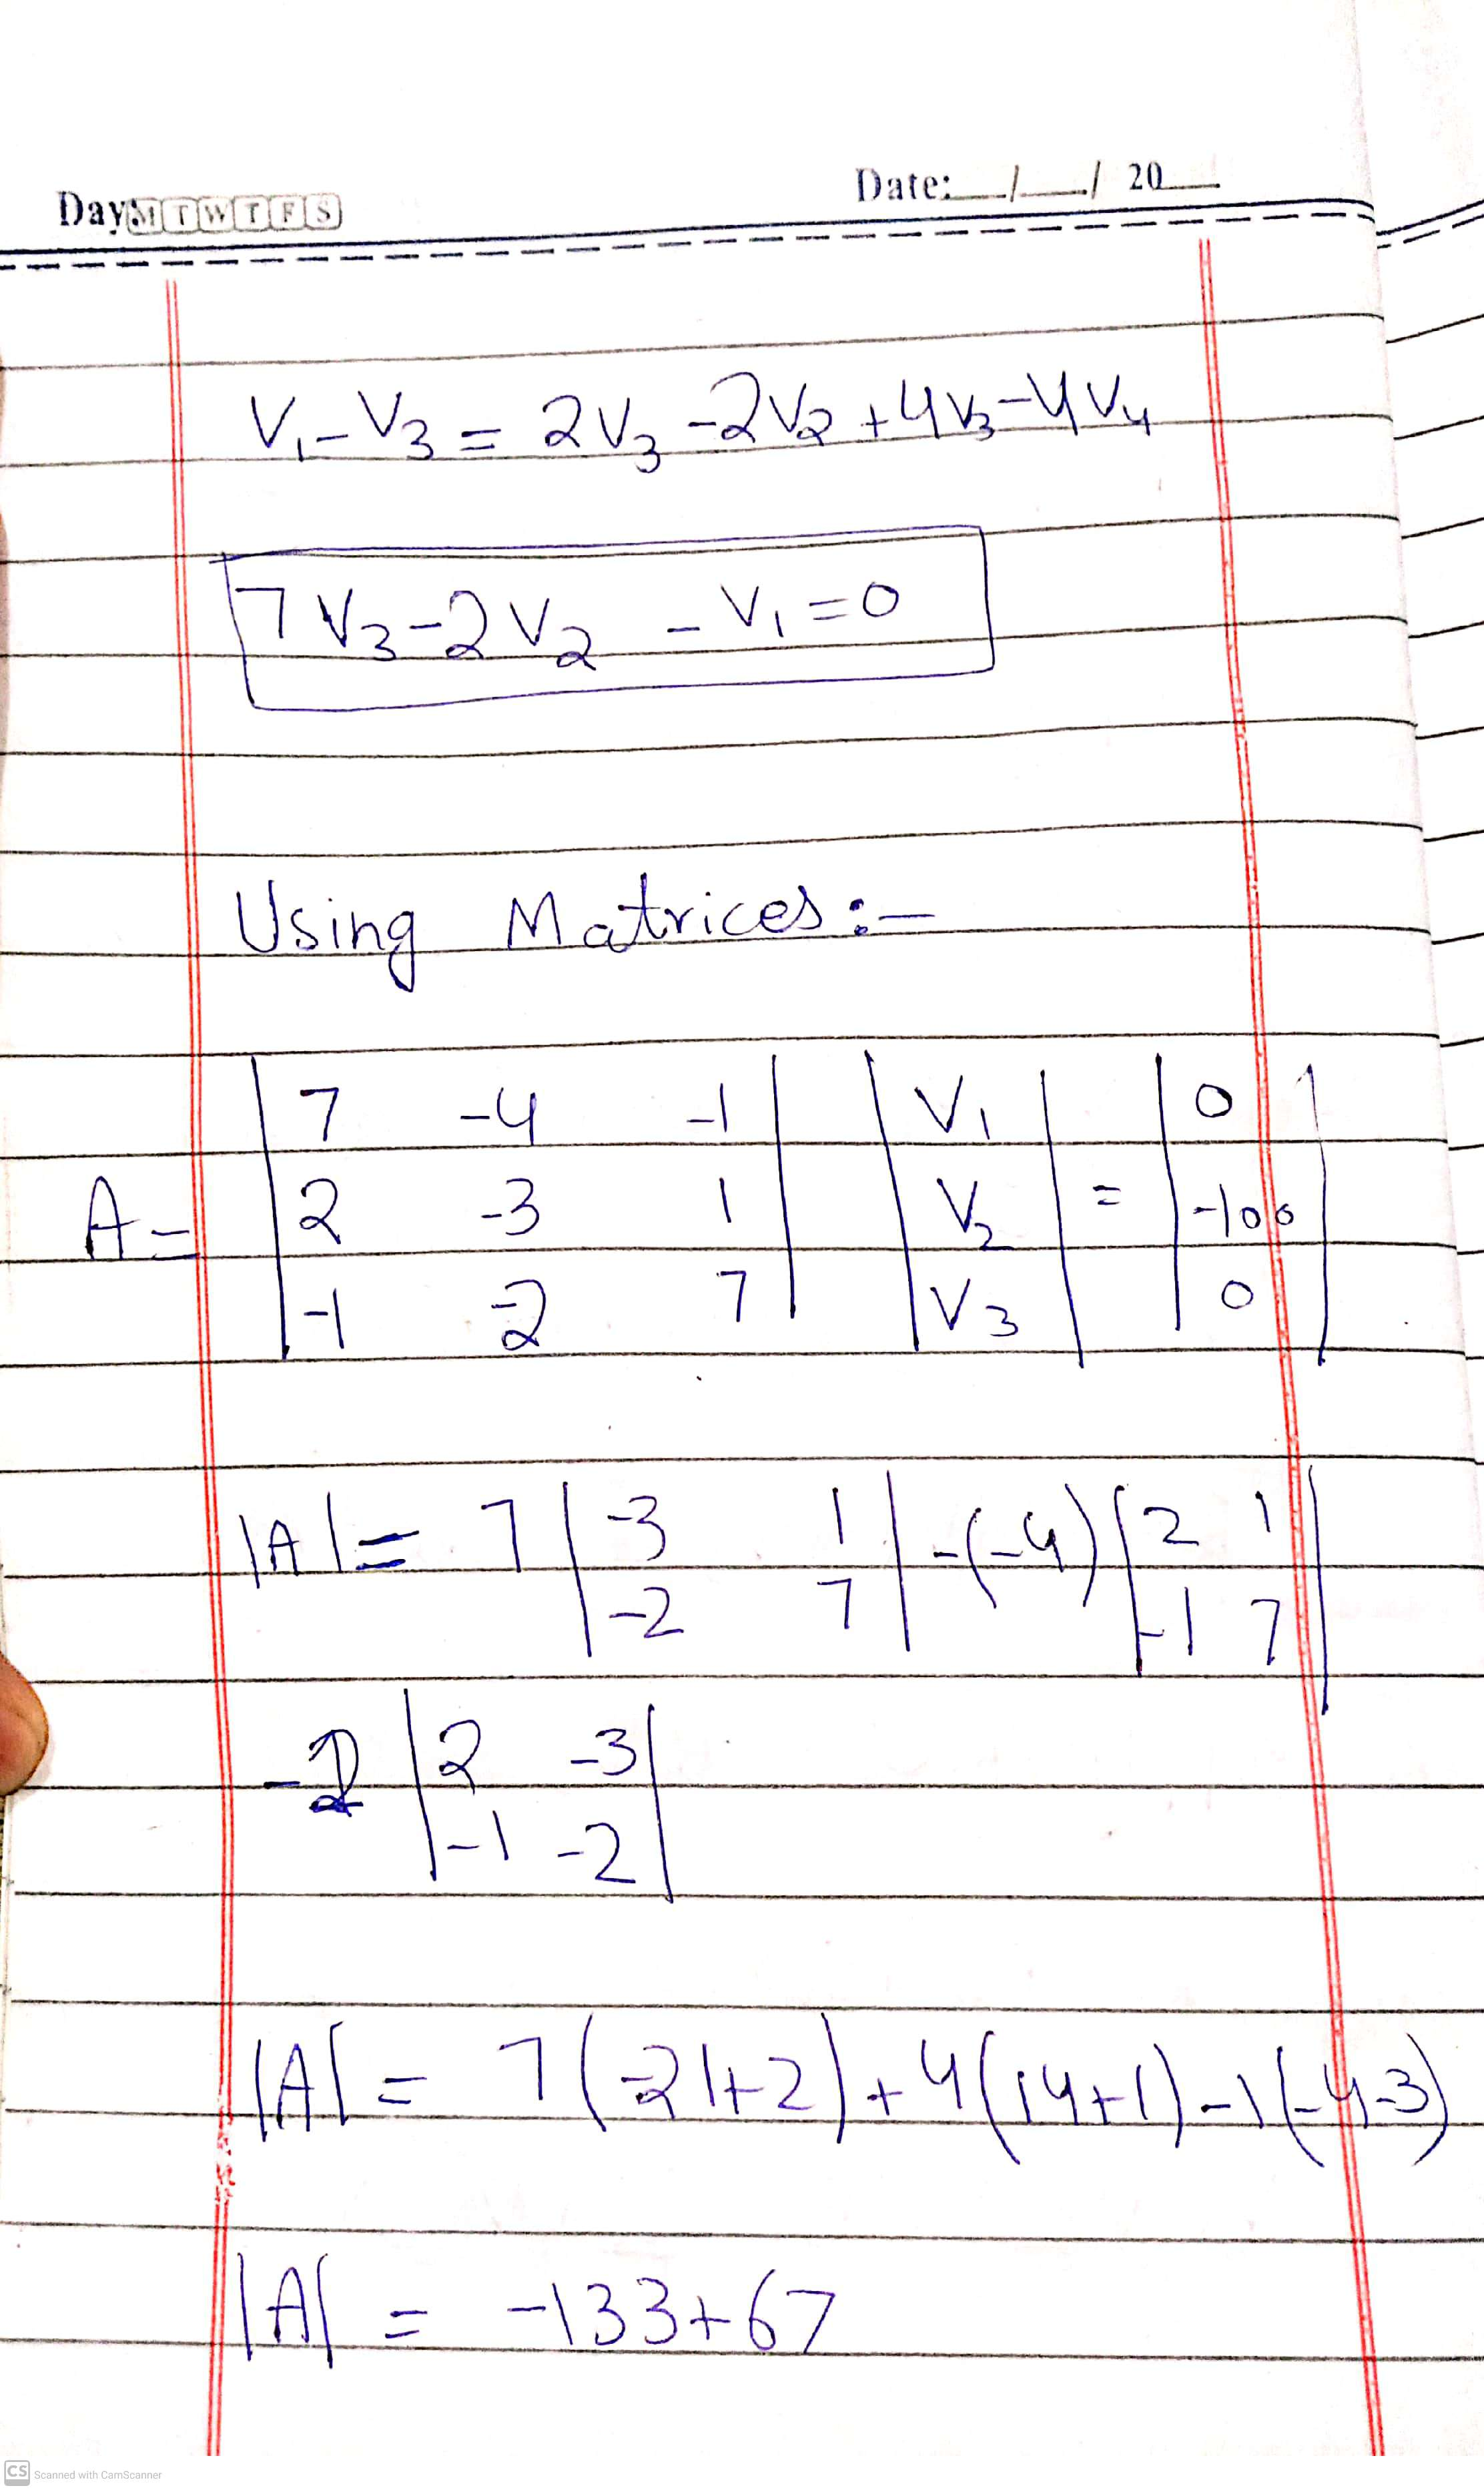 Day: M T W T F S
Date: __/__/ 20__
V₁ - V₃ = 2V₃ - 2V₂ + 4V₃ - 4V₄
7V₃ - 2V₂ - V₁ = 0
Using Matrices:-
A = | 7 -4 -1 | | V₁ | = | 0 |
| 2 -3 1 | | V₂ | = | -100 |
| -1 -2 7 | | V₃ | | 0 |
|A| = 7 | -3 1 | -(-4) | 2 1 |
| -2 7 | | -1 7 |
-1 | 2 -3 |
| -1 -2 |
|A| = 7(-21+2) + 4(14+1) - 1(-4-3)
|A| = -133+67
CS Scanned with CamScanner